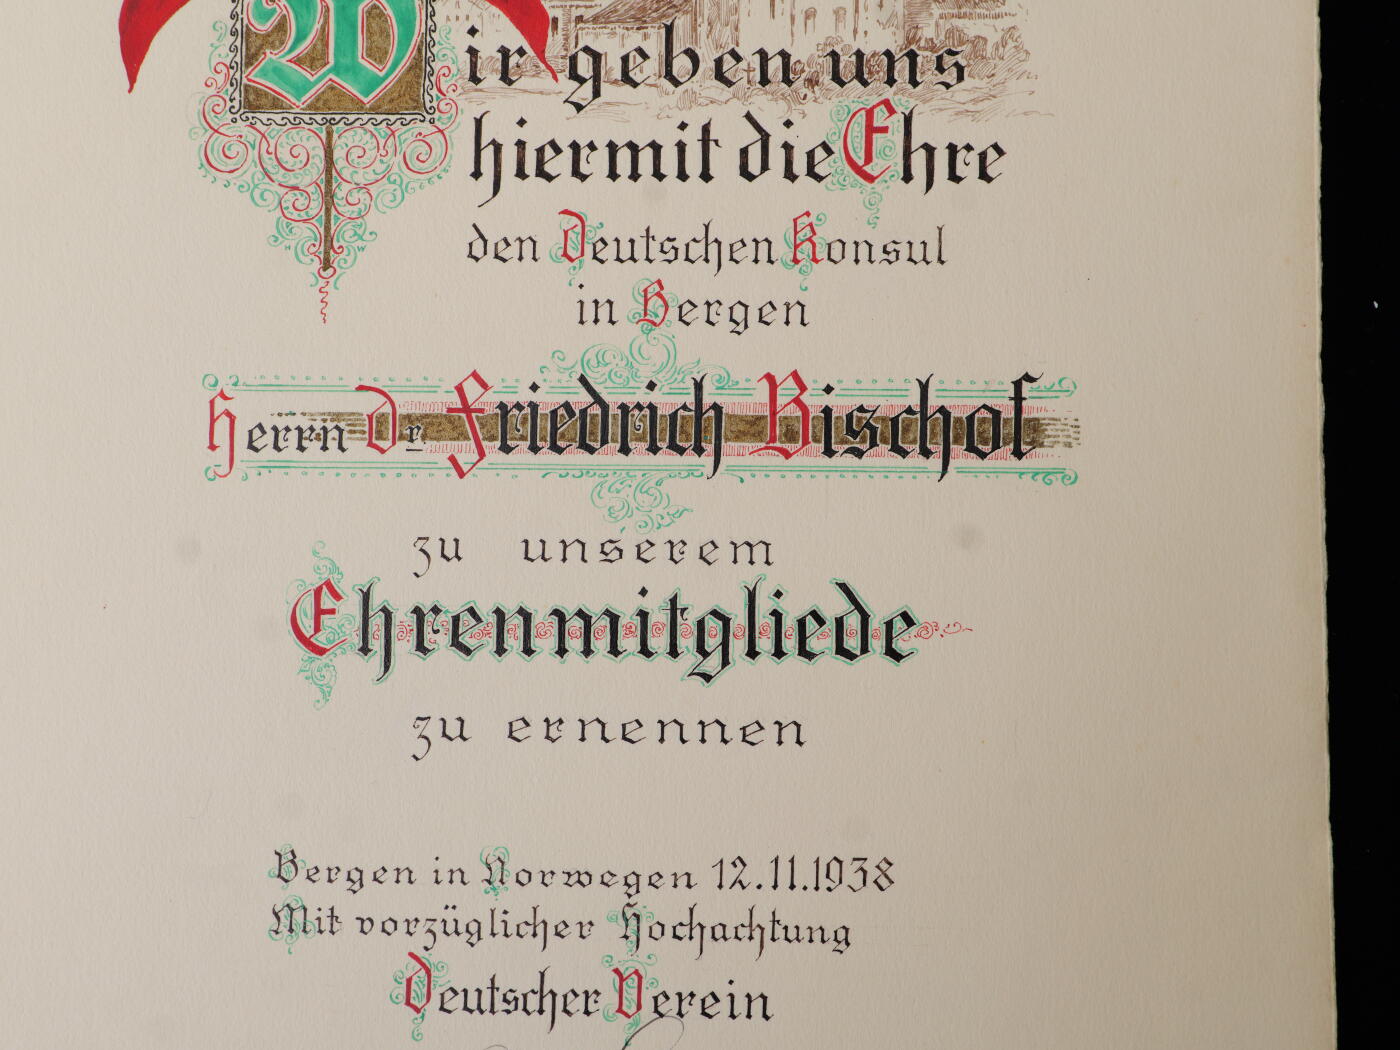 Wir geben uns
hiermit die Ehre
den Deutschen Konsul
in Bergen
Herrn Dr. Friedrich Bischof
zu unserem
Ehrenmitgliede
zu ernennen
Bergen in Norwegen 12.11.1938
Mit vorzüglicher Hochachtung
Deutscher Verein